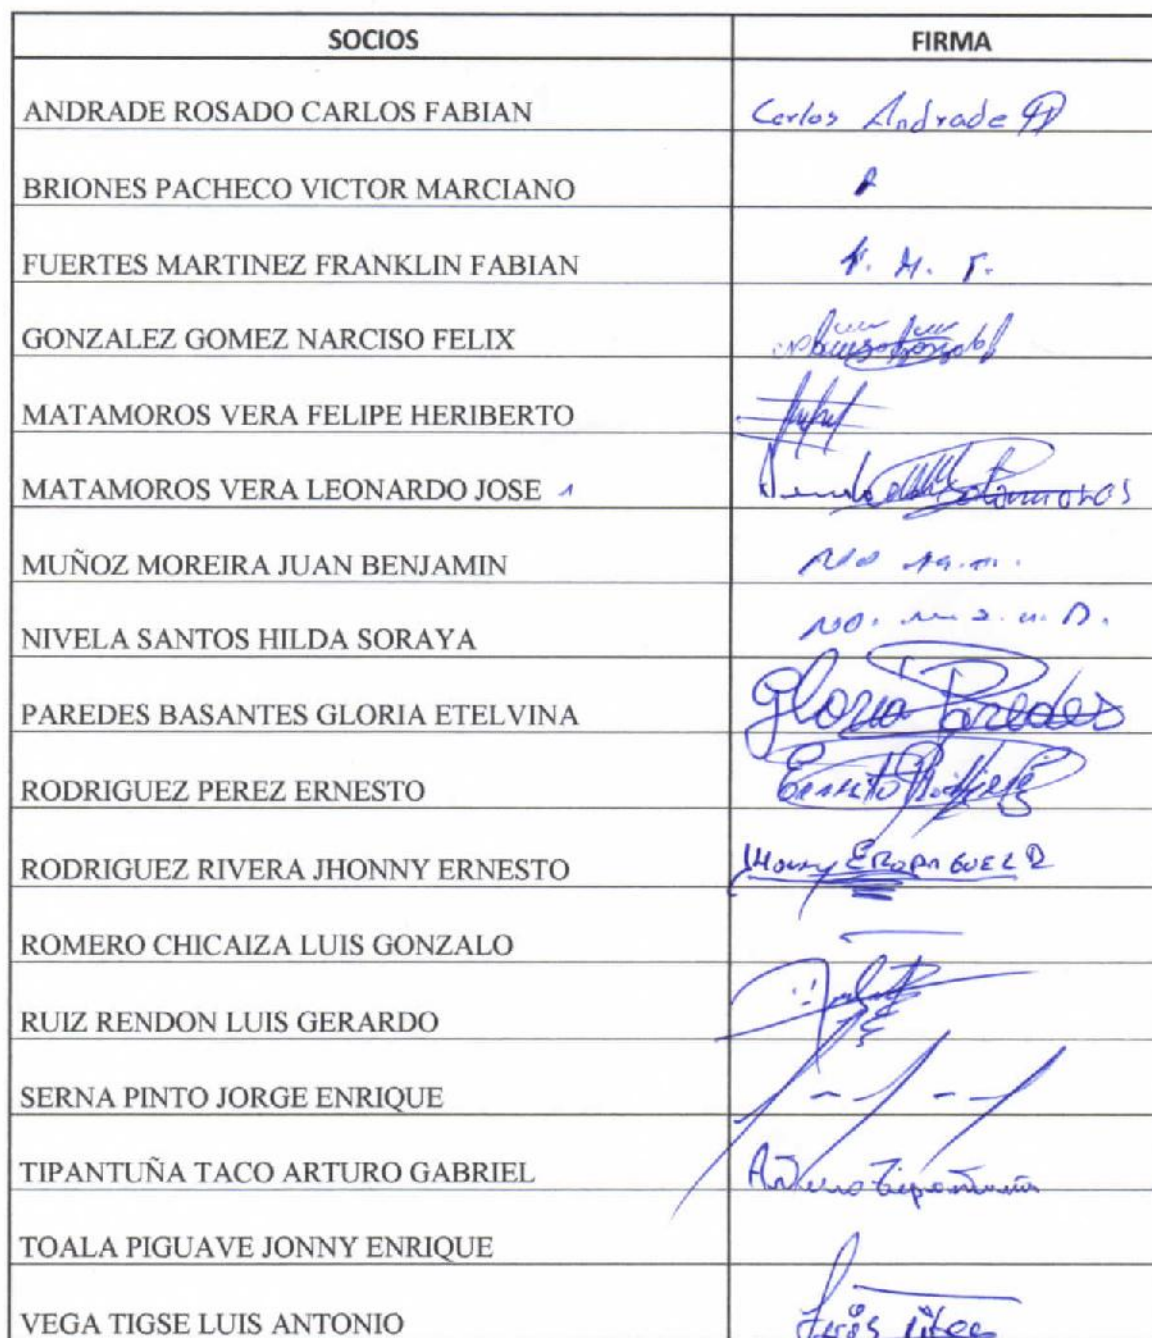 SOCIOS FIRMA
ANDRADE ROSADO CARLOS FABIAN Carlos Andrade
BRIONES PACHECO VICTOR MARCIANO
FUERTES MARTINEZ FRANKLIN FABIAN
GONZALEZ GOMEZ NARCISO FELIX
MATAMOROS VERA FELIPE HERIBERTO
MATAMOROS VERA LEONARDO JOSE
MUÑOZ MOREIRA JUAN BENJAMIN
NIVELA SANTOS HILDA SORAYA
PAREDES BASANTES GLORIA ETELVINA Gloria Paredes
RODRIGUEZ PEREZ ERNESTO Ernesto
RODRIGUEZ RIVERA JHONNY ERNESTO
ROMERO CHICAIZA LUIS GONZALO
RUIZ RENDON LUIS GERARDO
SERNA PINTO JORGE ENRIQUE
TIPANTUÑA TACO ARTURO GABRIEL Arturo Tipantuña
TOALA PIGUAVE JONNY ENRIQUE
VEGA TIGSE LUIS ANTONIO